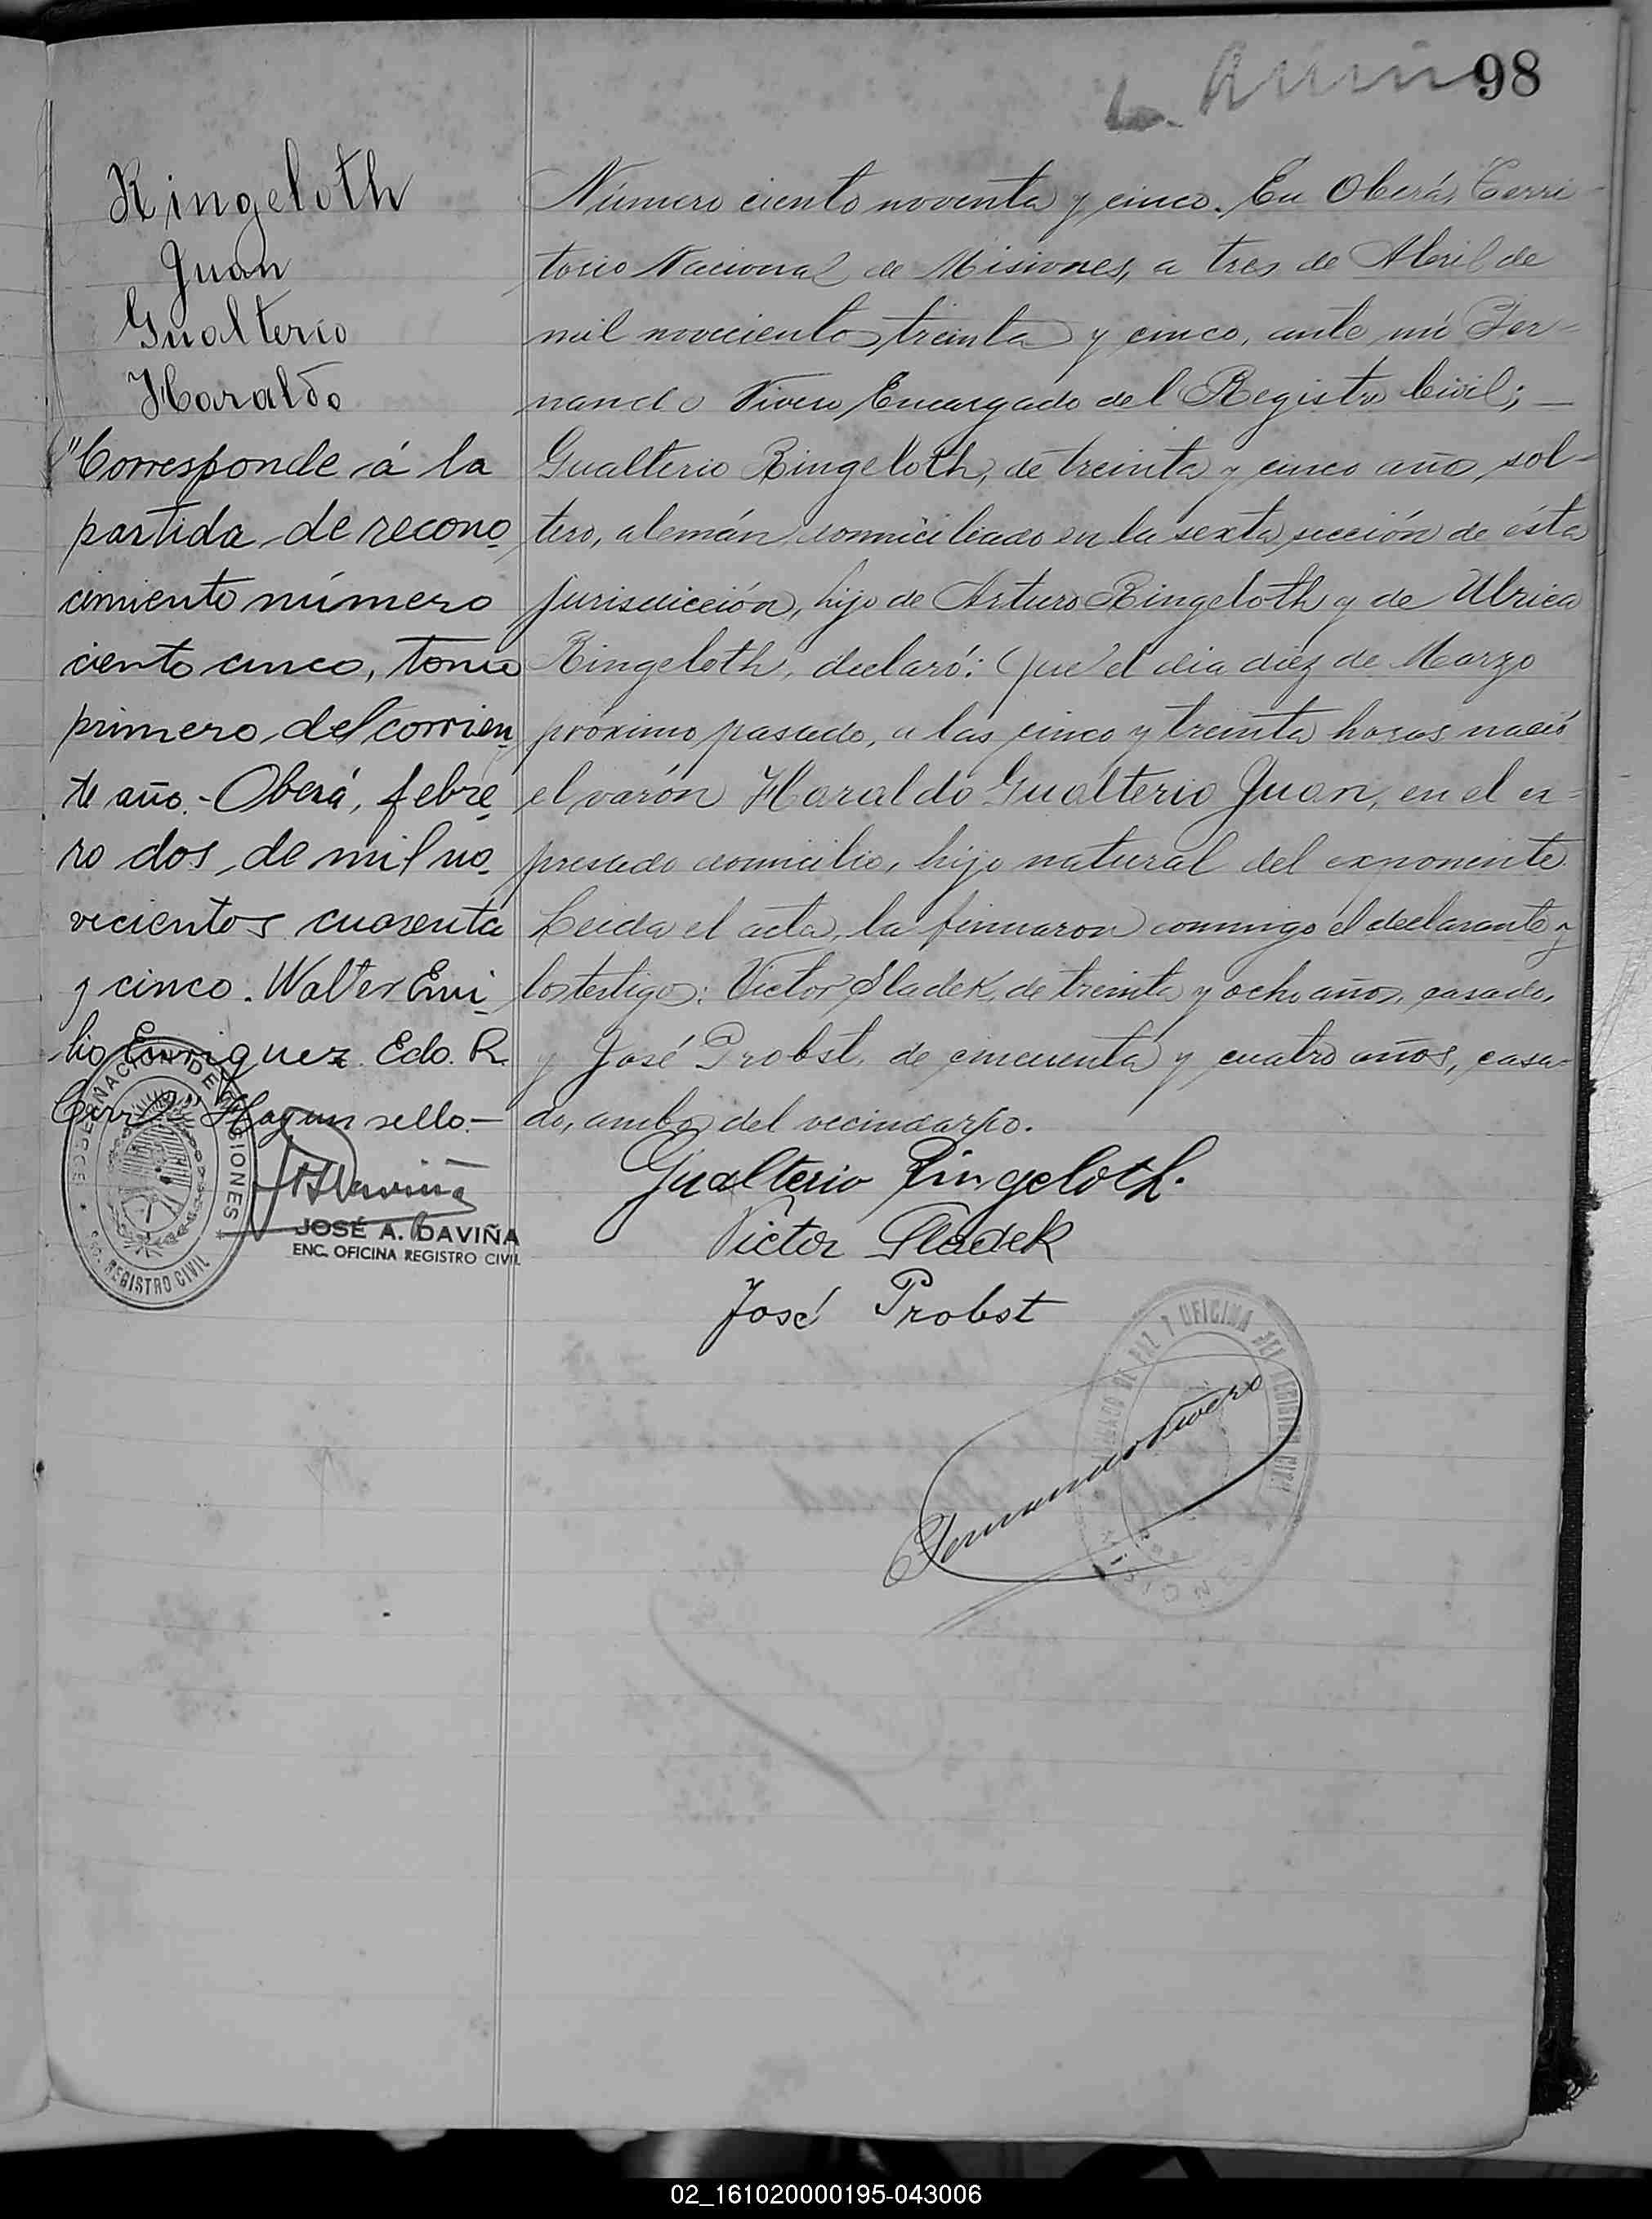 98
Ringeloth
Juan
Gualterio
Haraldo
"Corresponde á la
partida de recono_
cimiento número
ciento cinco, tomo
primero del corrien_
te año.- Oberá, febre_
ro dos de mil no_
vecientos cuarenta
y cinco. Walter Emi_
lio Enriquez. Edo. R.
Civil" Hay un sello.-
GOBERNACION DE MISIONES
REGISTRO CIVIL
JOSÉ A. DAVIÑA
ENC. OFICINA REGISTRO CIVIL
Número ciento noventa y cinco. En Oberá, Terri-
torio Nacional de Misiones, a tres de Abril de
mil novecientos treinta y cinco, ante mi Fer-
nando Vivero Encargado del Registro Civil; —
Gualterio Ringeloth, de treinta y cinco año, sol-
tero, alemán, domiciliado en la sexta sección de ésta
jurisdicción, hijo de Arturo Ringeloth y de Ulrica
Ringeloth, declaró: Que el dia diez de Marzo
próximo pasado, a las cinco y treinta horas nació
el varón Haraldo Gualterio Juan, en el ex-
presado domicilio, hijo natural del exponente.
Leida el acta, la firmaron conmigo el declarante y
los testigos: Victor Sladek, de treinta y ocho años, casado,
y José Probst, de cincuenta y cuatro años, casa-
do, ambos del vecindario.
Gualterio Ringeloth.
Victor Sladek
José Probst
Fernando Vivero
JUZGADO DE PAZ Y OFICINA DEL REGISTRO CIVIL
MISIONES
02_161020000195-043006